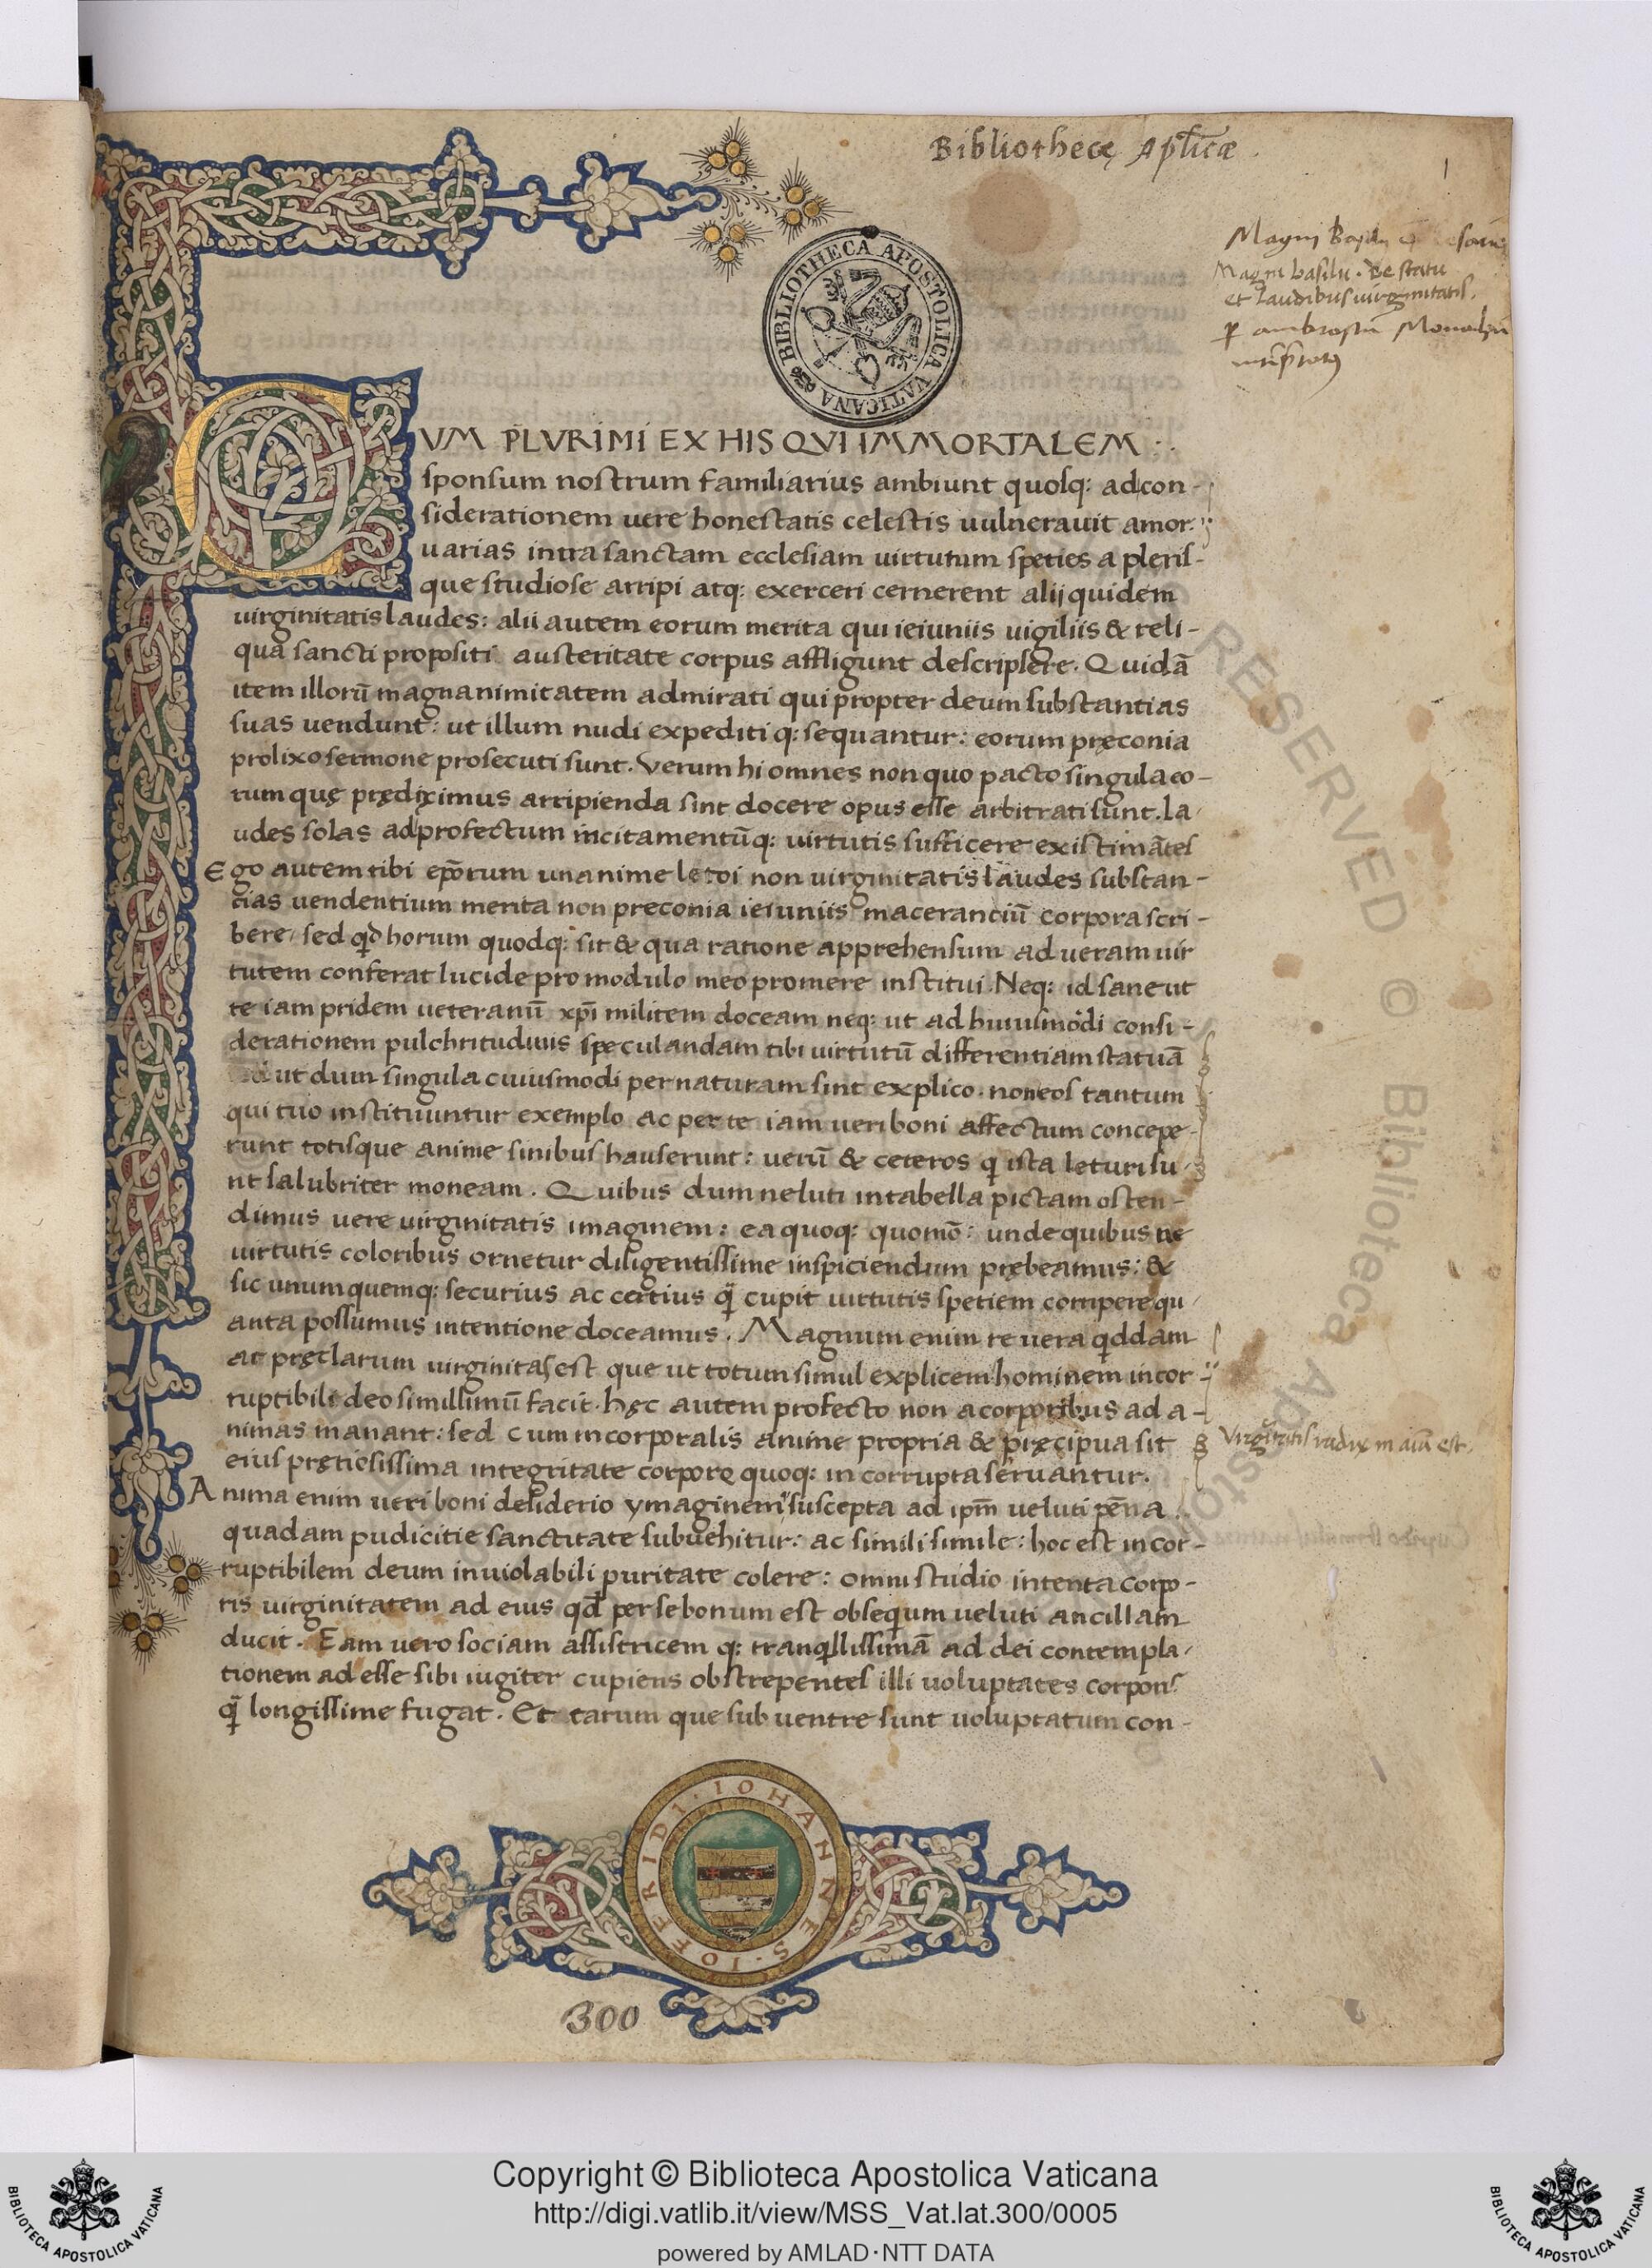 Bibliothecę Apl̃icæ
1
BIBLIOTHECA APOSTOLICA VATICANA
Magni Basilii
Magni basilii. De statu
et laudibus uirginitatis.
ꝑ ambrosiũ Monachũ
CUM PLVRIMI EX HIS QVI IMMORTALEM :.
sponsum nostrum familiarius ambiunt quosq: ad con-
siderationem uere honestatis celestis uulnerauit amor:
uarias intra sanctam ecclesiam uirtutum speties a pleris-
que studiose arripi atq: exerceri cernerent alij quidem
uirginitatis laudes: alii autem eorum merita qui ieiuniis uigiliis & reli-
qua sancti propositi austeritate corpus affligunt descripsere. Quidã
item illorũ magnanimitatem admirati qui propter deum substantias
suas uendunt: ut illum nudi expediti q: sequantur: eorum pręconia
prolixo sermone prosecuti sunt. Verum hi omnes non quo pacto singula eo-
rum quę prędiximus arripienda sint docere opus esse arbitrati sunt. la-
udes solas ad profectum incitamentũq: uirtutis sufficere existimãtes
Ego autem tibi ep̃orum unanime letoi non uirginitatis laudes substan-
tias uendentium merita non preconia ieiuniis macerantiũ corpora scri-
bere, sed qd horum quodq: sit & qua ratione apprehensum ad ueram uir
tutem conferat lucide pro modulo meo promere institui. Neq: id sane ut
te iam pridem ueteranũ xp̃i militem doceam neq: ut ad huiusmodi consi-
derationem pulchritudinis speculandam tibi uirtutũ differentiam statuã
ut dum singula cuiusmodi per naturam sint explico: non eos tantum
qui tuo instituuntur exemplo ac per te iam ueri boni affectum concepe-
runt totisque anime sinibus hauserunt: uerũ & ceteros q ista leturi su-
nt salubriter moneam. Quibus dum ueluti in tabella pictam osten-
dimus uere uirginitatis imaginem: ea quoq: quomõ: unde quibus ue
uirtutis coloribus ornetur diligentissime inspiciendum prębeamus: &
sic unumquemq: securius ac certius q̃ cupit uirtutis spetiem comperequ-
anta possumus intentione doceamus. Magnum enim re uera qddam
ac pręclarum uirginitas est que ut totum simul explicem hominem incor-
ruptibili deo simillimũ facit. hęc autem profecto non a corporibus ad a-
nimas manant: sed cum incorporalis anime propria & pręcipua sit
eius pretiosissima integritate corpore quoq: incorrupta seruantur.
Virginitatis radix in aĩa est.
Anima enim ueri boni desiderio ymaginem suscepta ad ipm̃ ueluti pẽna
quadam pudicitie sanctitate subuehitur: ac simili simile: hoc est incor-
ruptibilem deum inuiolabili puritate colere: omni studio intenta corpo-
ris uirginitatem ad eius qd̃ per se bonum est obsequm ueluti ancillam
ducit. Eam uero sociam assistricem q: tranqllissimã ad dei contempla-
tionem ad esse sibi iugiter cupiens obstrepentes illi uoluptates corporis
q̃ longissime fugat. Et earum que sub uentre sunt uoluptatum con-
IOHANNES · IOFRIDI ·
300
RESERVED © Biblioteca Apostolica
Copyright © Biblioteca Apostolica Vaticana
http://digi.vatlib.it/view/MSS_Vat.lat.300/0005
powered by AMLAD·NTT DATA
BIBLIOTECA APOSTOLICA VATICANA
BIBLIOTECA APOSTOLICA VATICANA